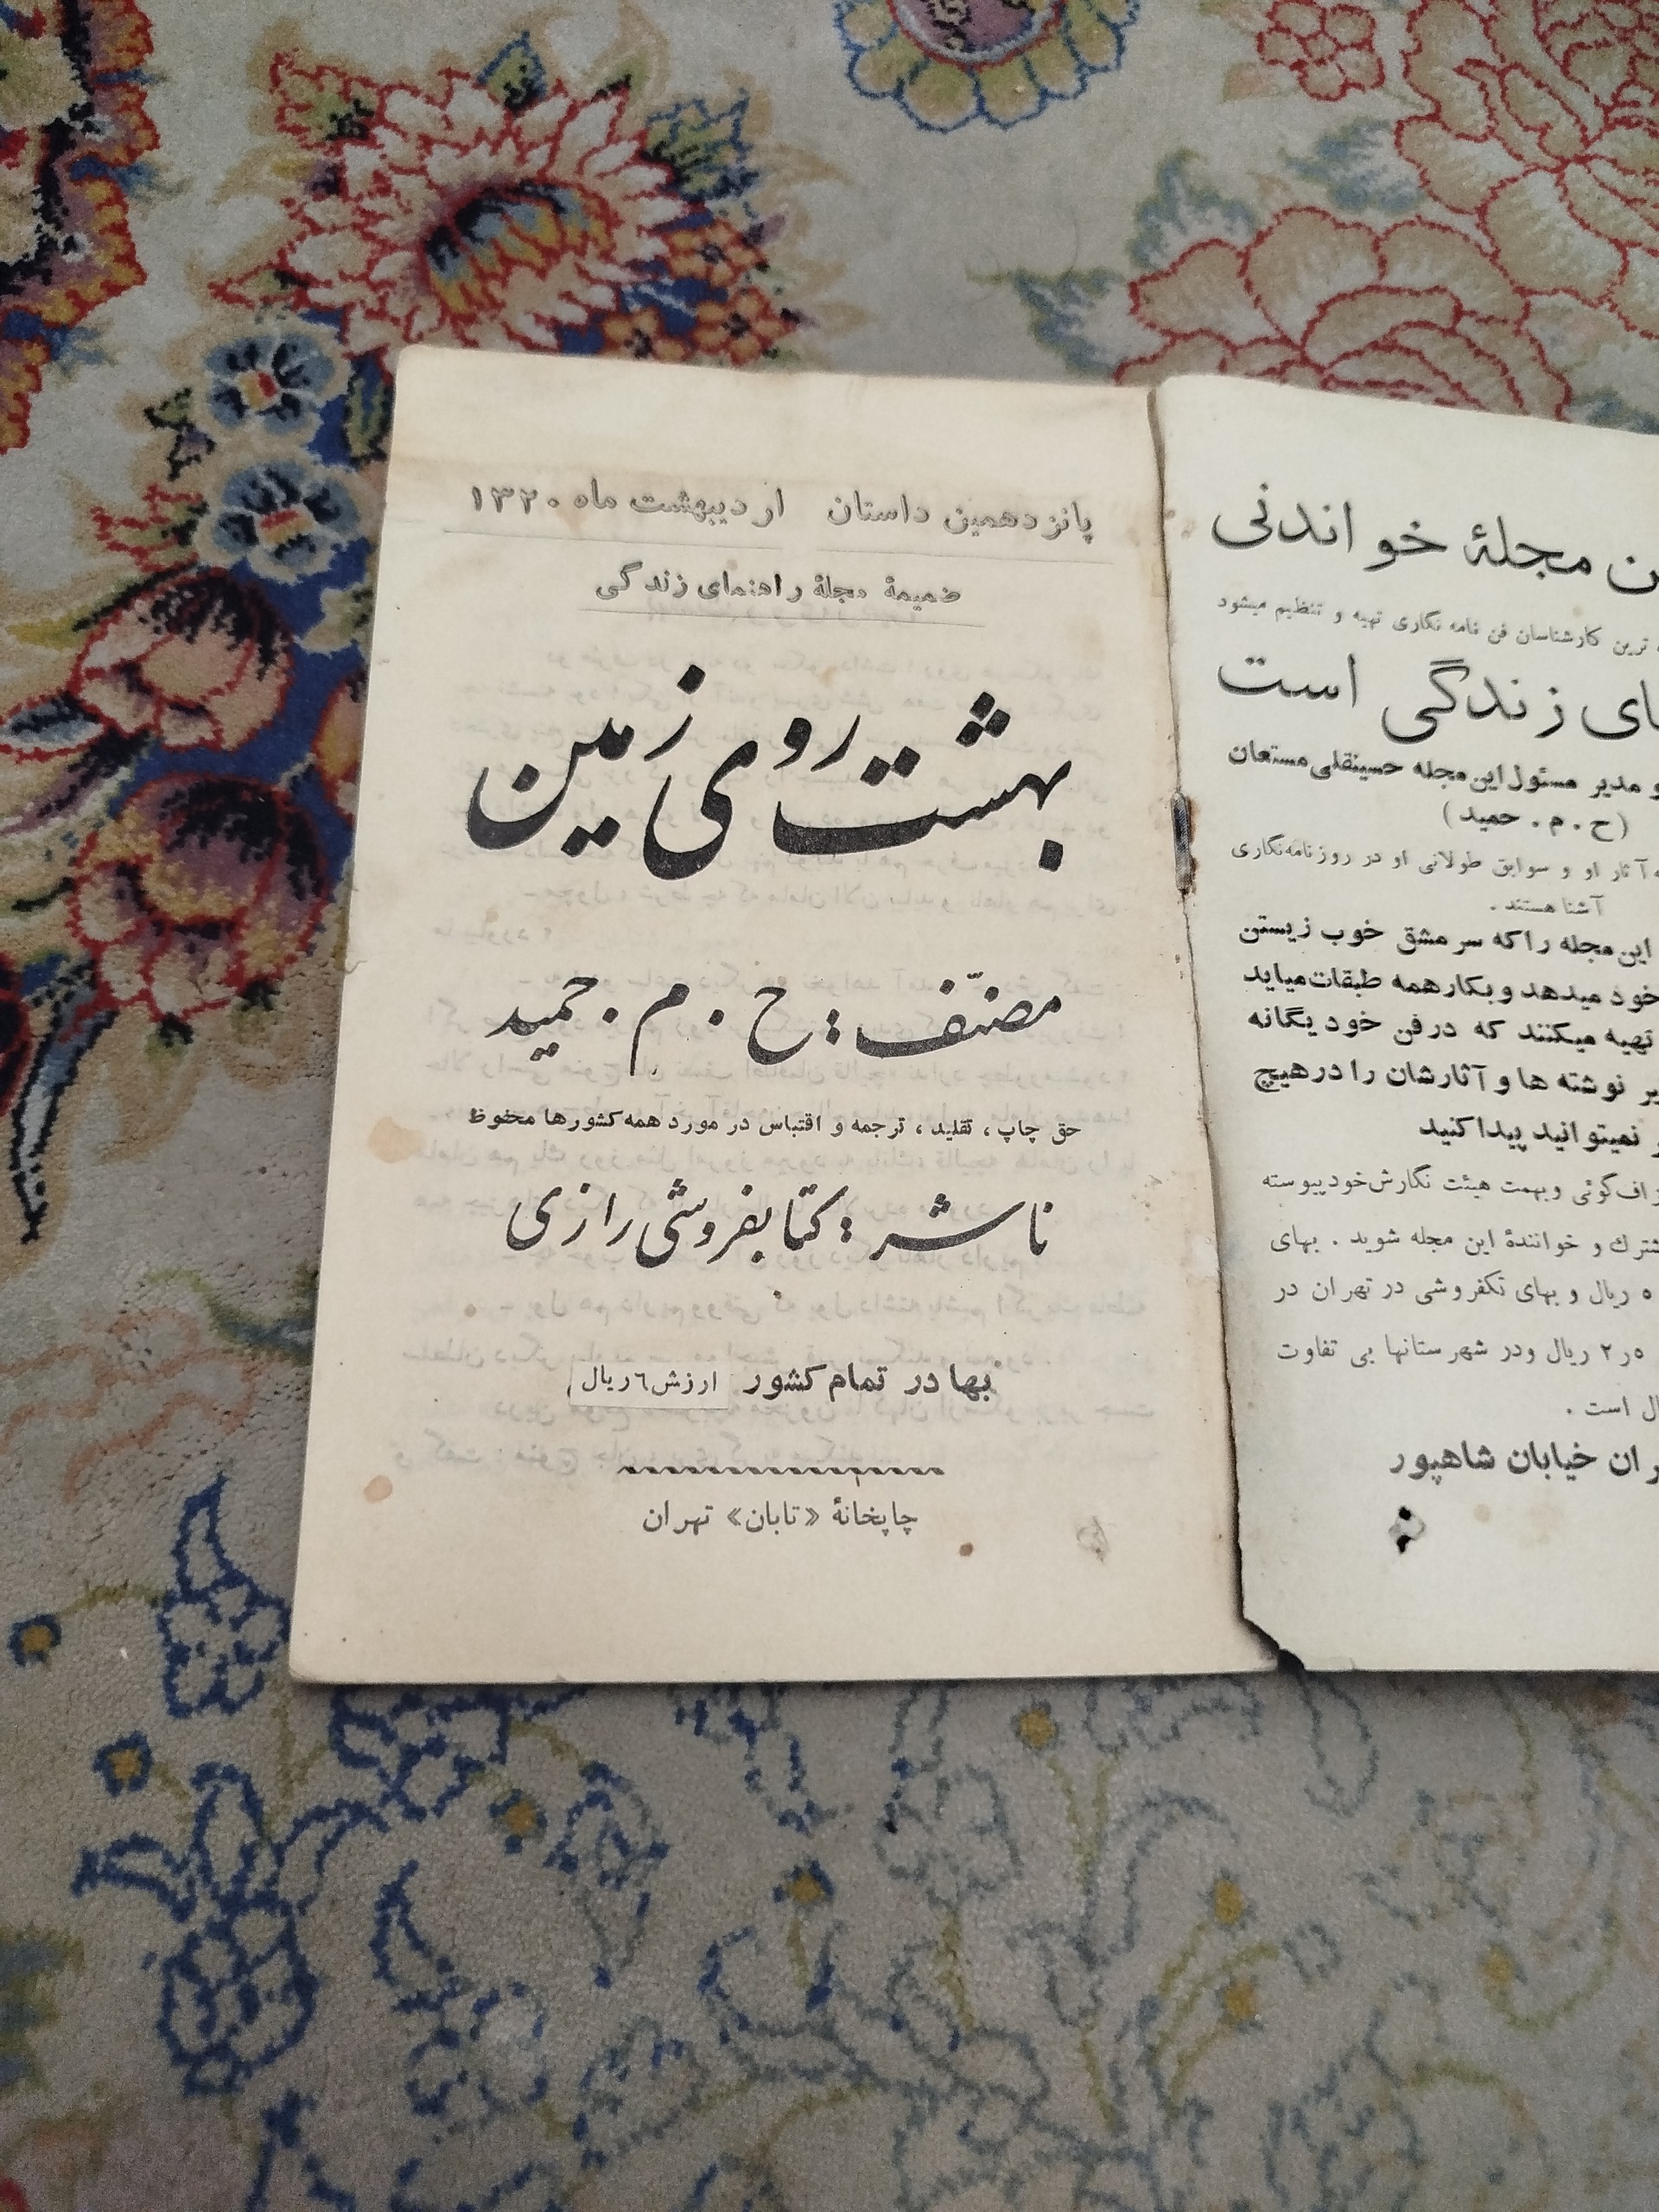 پانزدهمین داستان اردیبهشت ماه ۱۳۲۰
ضمیمهٔ مجلهٔ راهنمای زندگی
بهشت روی زمین
مصنّف : ح . م . حمید
حق چاپ ، تقلید ، ترجمه و اقتباس در مورد همه کشورها محفوظ
ناشر : کتابفروشی رازی
بها در تمام کشور ارزش ٦ ریال
چاپخانهٔ «تابان» تهران
مجلهٔ خواندنی
ترین کارشناسان فن نامه نگاری تهیه و تنظیم میشود
زندگی است
و مدیر مسئول این مجله حسینقلی مستعان
(ح . م . حمید)
آثار او و سوابق طولانی او در روزنامه‌نگاری
آشنا هستند .
این مجله را که سر مشق خوب زیستن
خود میدهد و بکار همه طبقات میاید
تهیه میکنند که در فن خود یگانه
نوشته ها و آثارشان را در هیچ
نمیتوانید پیدا کنید
گوئی و بهمت هیئت نگارش خود پیوسته
و خوانندهٔ این مجله شوید . بهای
ریال و بهای تکفروشی در تهران در
۲ر۵ ریال ودر شهرستانها بی تفاوت
است .
خیابان شاهپور